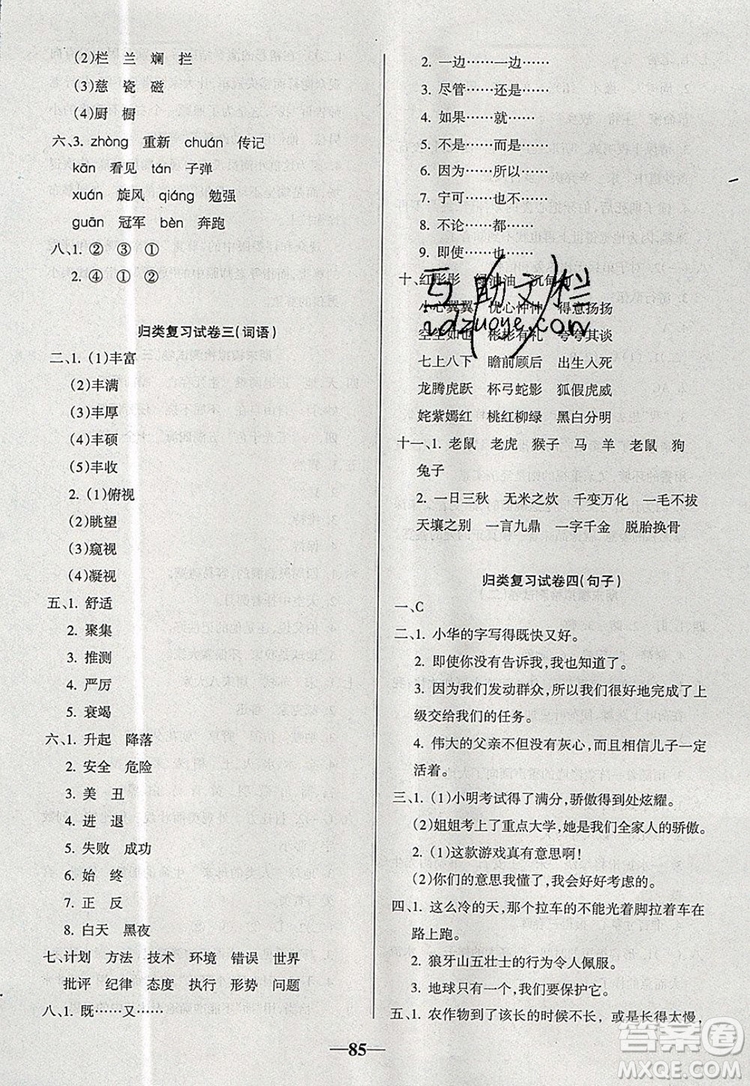 (2)栏 兰 斓 拦
(3)慈 瓷 磁
(4)厨 橱
六、3. zhòng 重新 chuán 传记
kān 看见 tán 子弹
xuán 旋风 qiáng 勉强
guān 冠军 bèn 奔跑
八、1. ② ③ ①
2. ④ ① ②
归类复习试卷三(词语)
二、1. (1)丰富
(2)丰满
(3)丰厚
(4)丰硕
(5)丰收
2. (1)俯视
(2)眺望
(3)窥视
(4)凝视
五、1. 舒适
2. 聚集
3. 推测
4. 严厉
5. 衰竭
六、1. 升起 降落
2. 安全 危险
3. 美 丑
4. 进 退
5. 失败 成功
6. 始 终
7. 正 反
8. 白天 黑夜
七、计划 方法 技术 环境 错误 世界
批评 纪律 态度 执行 形势 问题
八、1. 既……又……
2. 一边……一边……
3. 尽管……还是……
4. 如果……就……
5. 不是……而是……
6. 因为……所以……
7. 宁可……也不……
8. 不论……都……
9. 即使……也……
十、红彤彤 绿油油 沉甸甸
小心翼翼 忧心忡忡 得意扬扬
空空如也 彬彬有礼 夸夸其谈
七上八下 瞻前顾后 出生入死
龙腾虎跃 杯弓蛇影 狐假虎威
姹紫嫣红 桃红柳绿 黑白分明
十一、1. 老鼠 老虎 猴子 马 羊 老鼠 狗
兔子
2. 一日三秋 无米之炊 千变万化 一毛不拔
天壤之别 一言九鼎 一字千金 脱胎换骨
归类复习试卷四(句子)
一、C
二、1. 小华的字写得既快又好。
2. 即使你没有告诉我,我也知道了。
3. 因为我们发动群众,所以我们很好地完成了上
级交给我们的任务。
4. 伟大的父亲不但没有灰心,而且相信儿子一定
活着。
三、1. (1)小明考试得了满分,骄傲得到处炫耀。
(2)姐姐考上了重点大学,她是我们全家人的骄傲。
2. (1)这款游戏真有意思啊!
(2)你们的意思我懂了,我会好好考虑的。
四、1. 这么冷的天,那个拉车的不能光着脚拉着车在
路上跑。
2. 狼牙山五壮士的行为令人佩服。
3. 地球只有一个,我们要保护它。
五、1. 农作物到了该长的时候不长,或是长得太慢,
85
互助文栏
zdzuoye.com
作业精灵
MXQE.COM